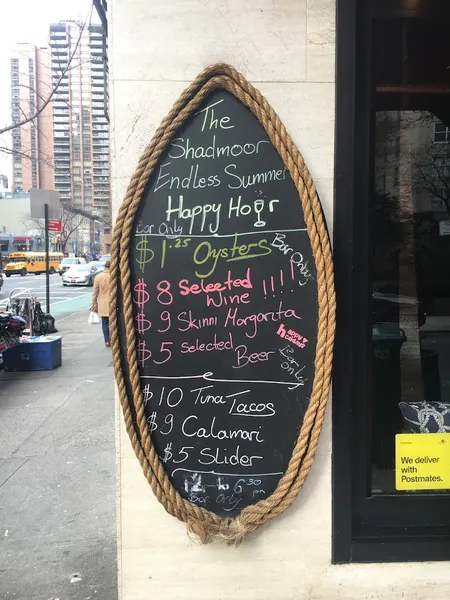 The
Shadmoor
Endless Summer
Happy Hour
Bar Only
$1.25 Oysters
Bar Only
$8 Selected
Wine !!!!
$9 Skinni Margarita
$5 Selected
Beer
Bar Only
$10 Tuna Tacos
$9 Calamari
$5 Slider
12 - 6:30 pm
Bar Only
We deliver
with
Postmates.